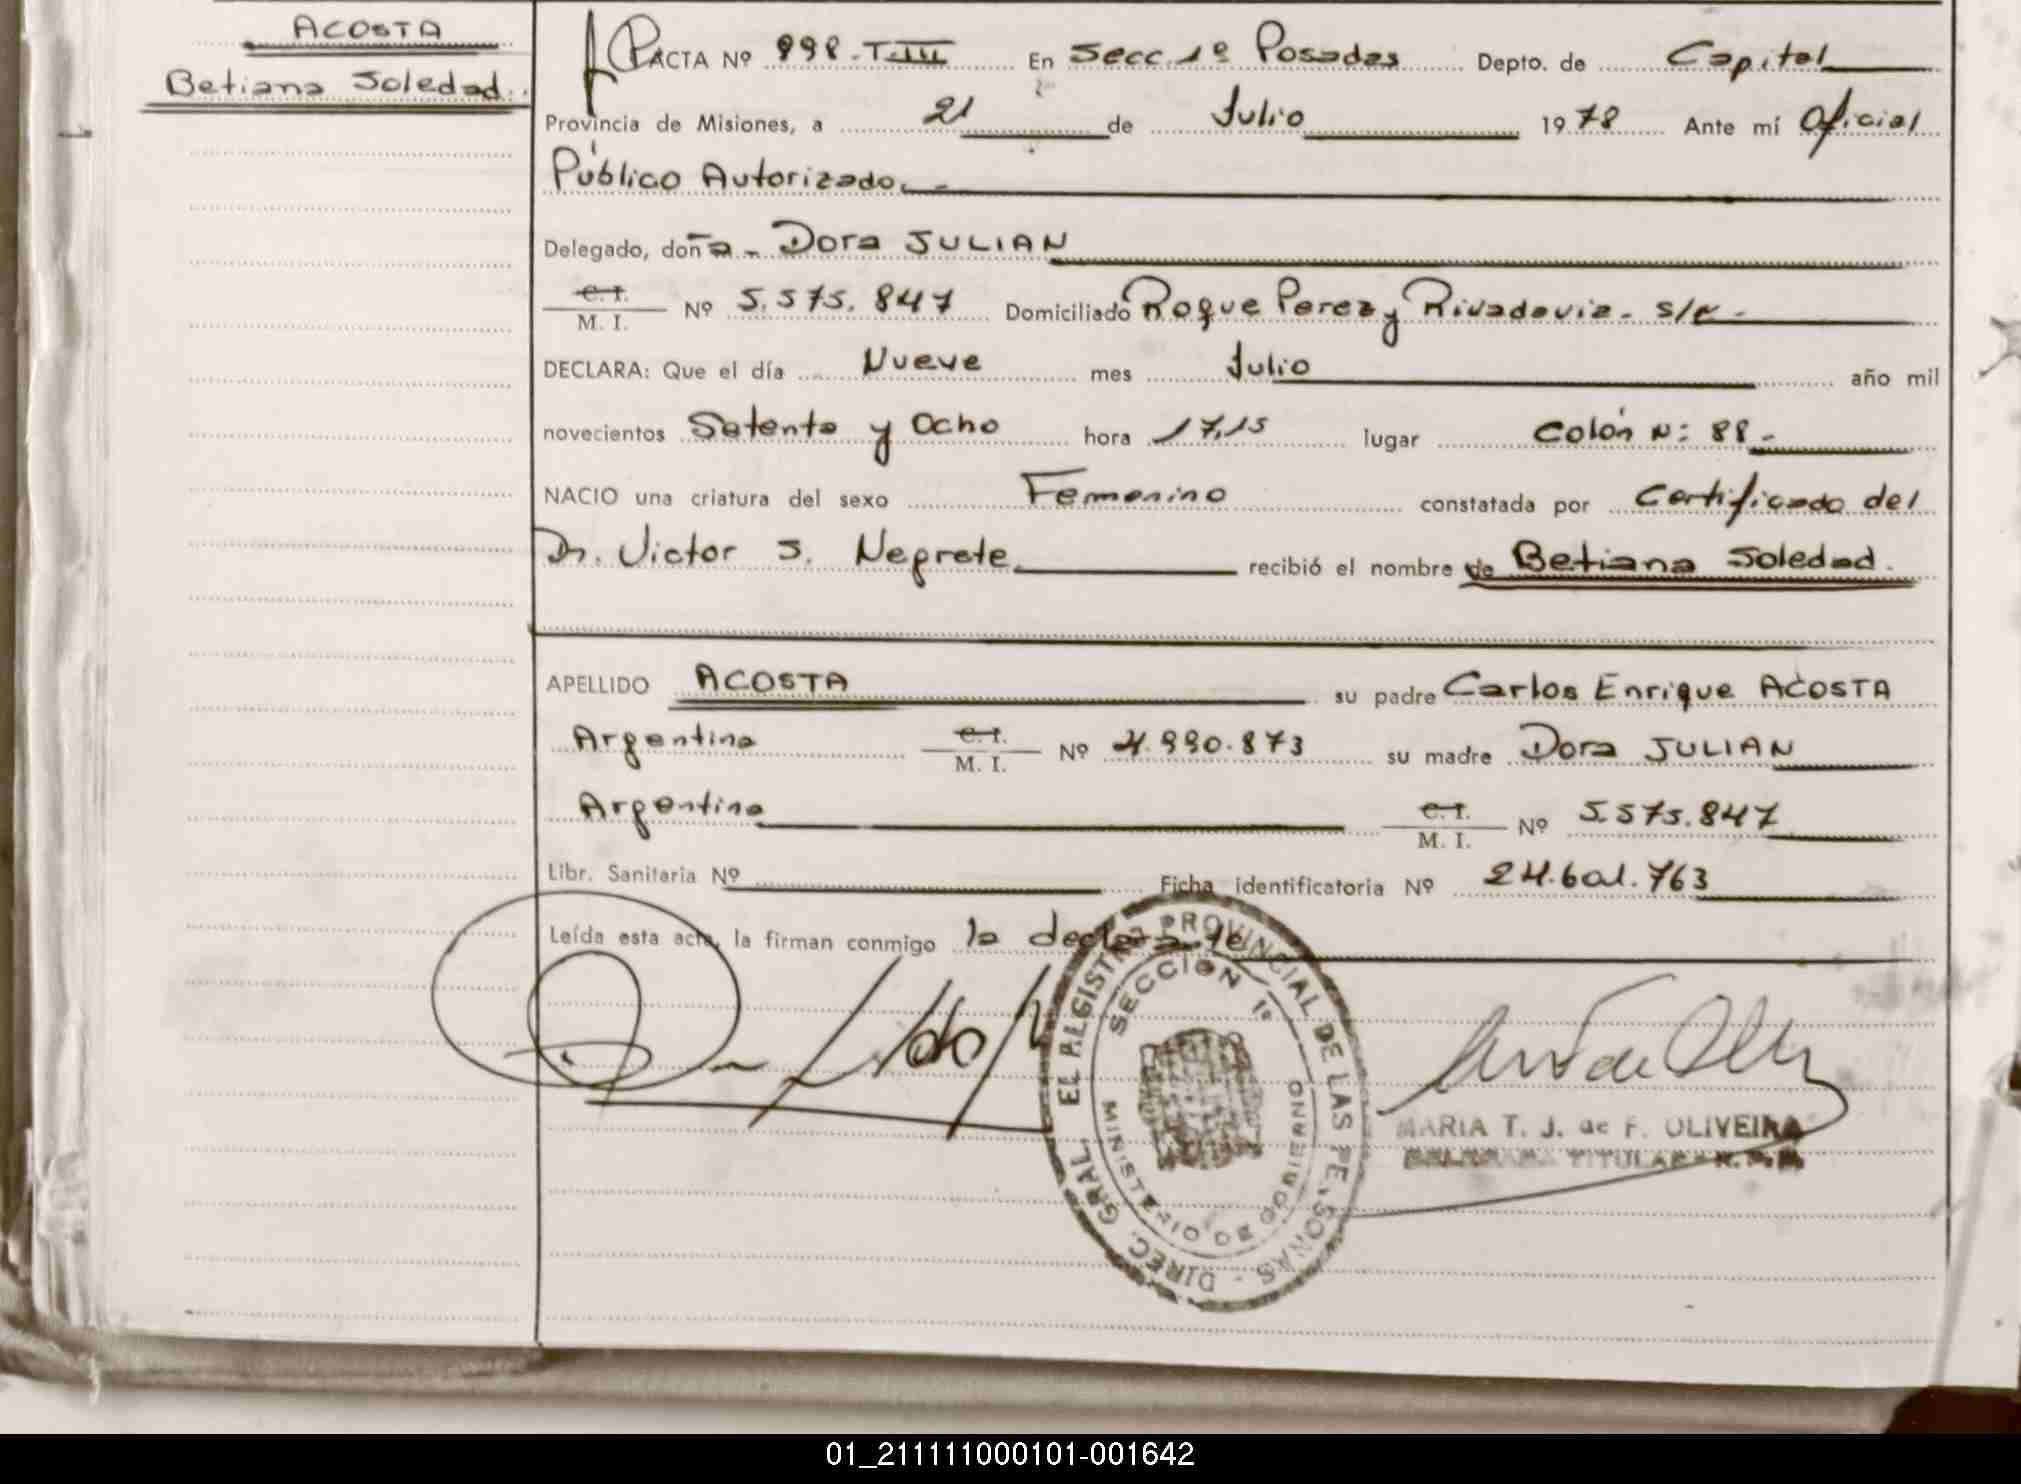 ACOSTA
Betiana Soledad.
ACTA Nº 998-T.III En Secc. 1º Posadas Depto. de Capital
Provincia de Misiones, a 21 de Julio 1978 Ante mí Oficial
Público Autorizado.-
Delegado, doña - Dora JULIAN
C. I.
M. I. Nº 5.575.847 Domiciliado Roque Perez y Rivadavia - s/n -
DECLARA: Que el día Nueve mes Julio año mil
novecientos Setenta y Ocho hora 17,15 lugar Colón N: 88 -
NACIO una criatura del sexo Femenino constatada por Certificado del
Dr. Victor S. Negrete recibió el nombre de Betiana Soledad.
APELLIDO ACOSTA su padre Carlos Enrique ACOSTA
Argentina C. I.
M. I. Nº 4.990.873 su madre Dora JULIAN
Argentina C. I.
M. I. Nº 5.575.847
Libr. Sanitaria Nº Ficha identificatoria Nº 24.601.763
Leída esta acta, la firman conmigo la declarante
DIREC. GRAL. PROVINCIAL DE LAS PERSONAS -
SECCION 1º
MINISTERIO DE GOBIERNO
MARIA T. J. de F. OLIVEIRA
TITULAR
01_211111000101-001642